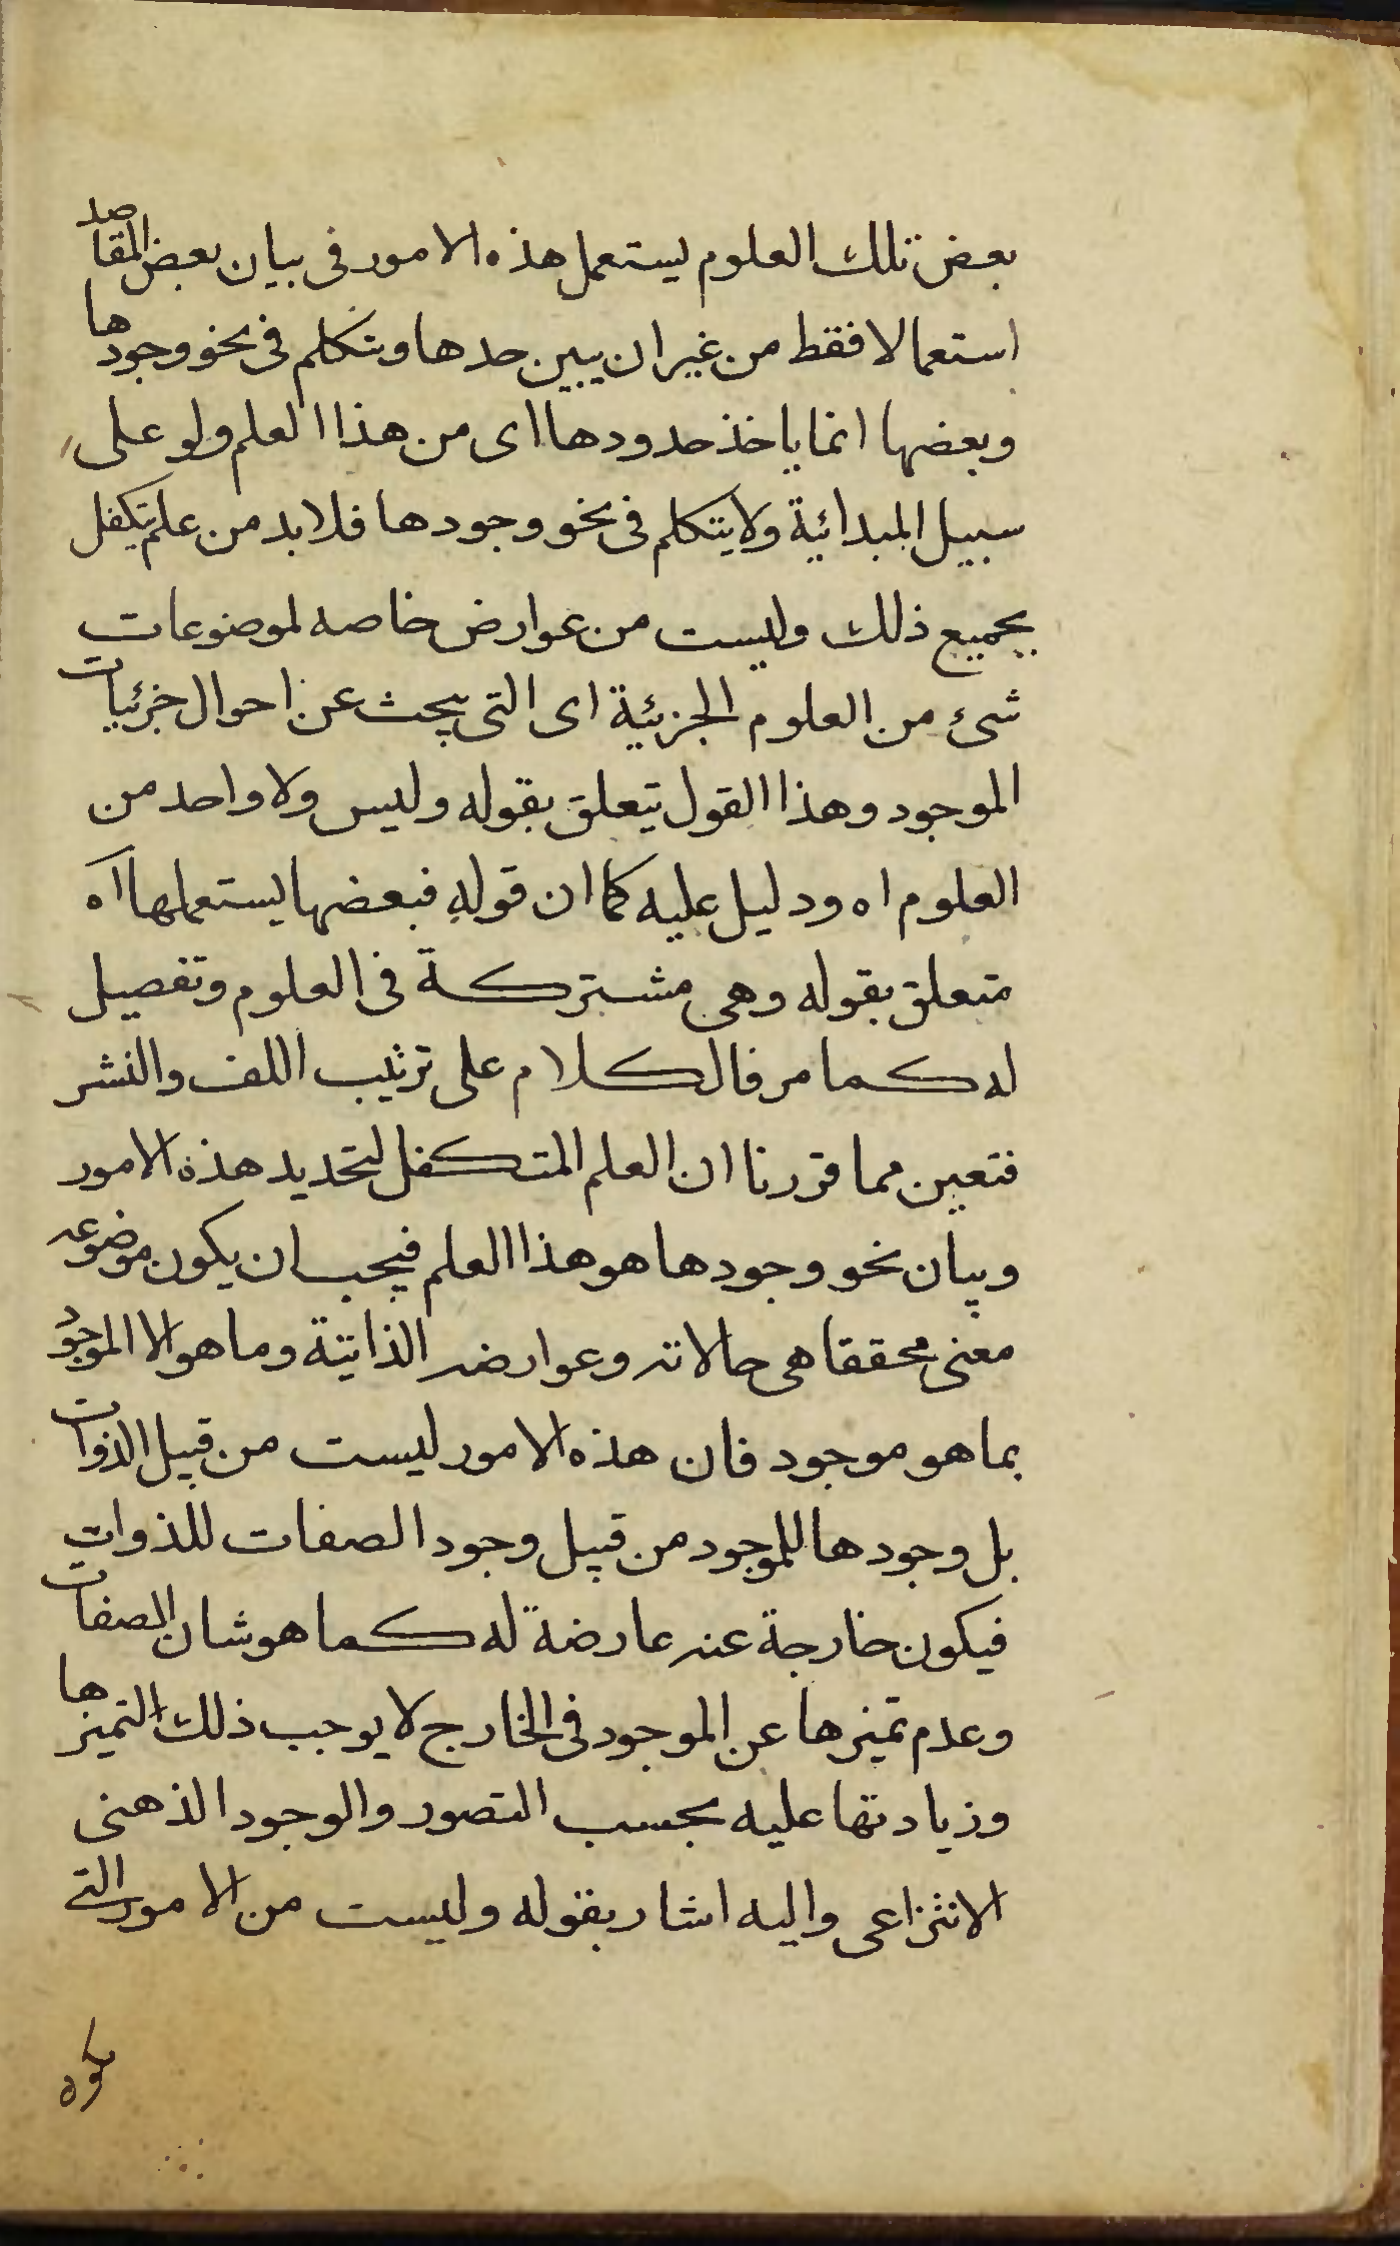 بعض تلك العلوم يستعمل هذه الامور فى بيان بعض المقاصد
استعمالا فقط من غير ان يبين حدها ويتكلم فى نحو وجودها
وبعضها انما ياخذ حدودها اى من هذا العلم ولو على
سبيل المبدائية ولا يتكلم فى نحو وجودها فلا بد من علم يتكفل
بجميع ذلك وليست من عوارض خاصه لموضوعات
شئ من العلوم الجزئية اى التى يبحث عن احوال جزئيات
الموجود وهذا القول يتعلق بقوله وليس ولا واحد من
العلوم اه ودليل عليه كما ان قوله فبعضها يستعملها آه
متعلق بقوله وهى مشتركة فى العلوم وتفصيل
له كما مر فالكلام على ترتيب اللف والنشر
فتعين مما قررنا ان العلم المتكفل لتحديد هذه الامور
وبيان نحو وجودها هو هذا العلم فيجب ان يكون موضوعه
معنى محققا هى حالاته وعوارضه الذاتية وما هو الا الموجود
بما هو موجود فان هذه الامور ليست من قبيل الذوات
بل وجودها للموجود من قبيل وجود الصفات للذوات
فيكون خارجة عنه عارضة له كما هو شان الصفات
وعدم تميزها عن الموجود فى الخارج لا يوجب ذلك التميزها
وزيادتها عليه بحسب التصور والوجود الذهنى
الانتزاعى واليه اشار بقوله وليست من الامور التى